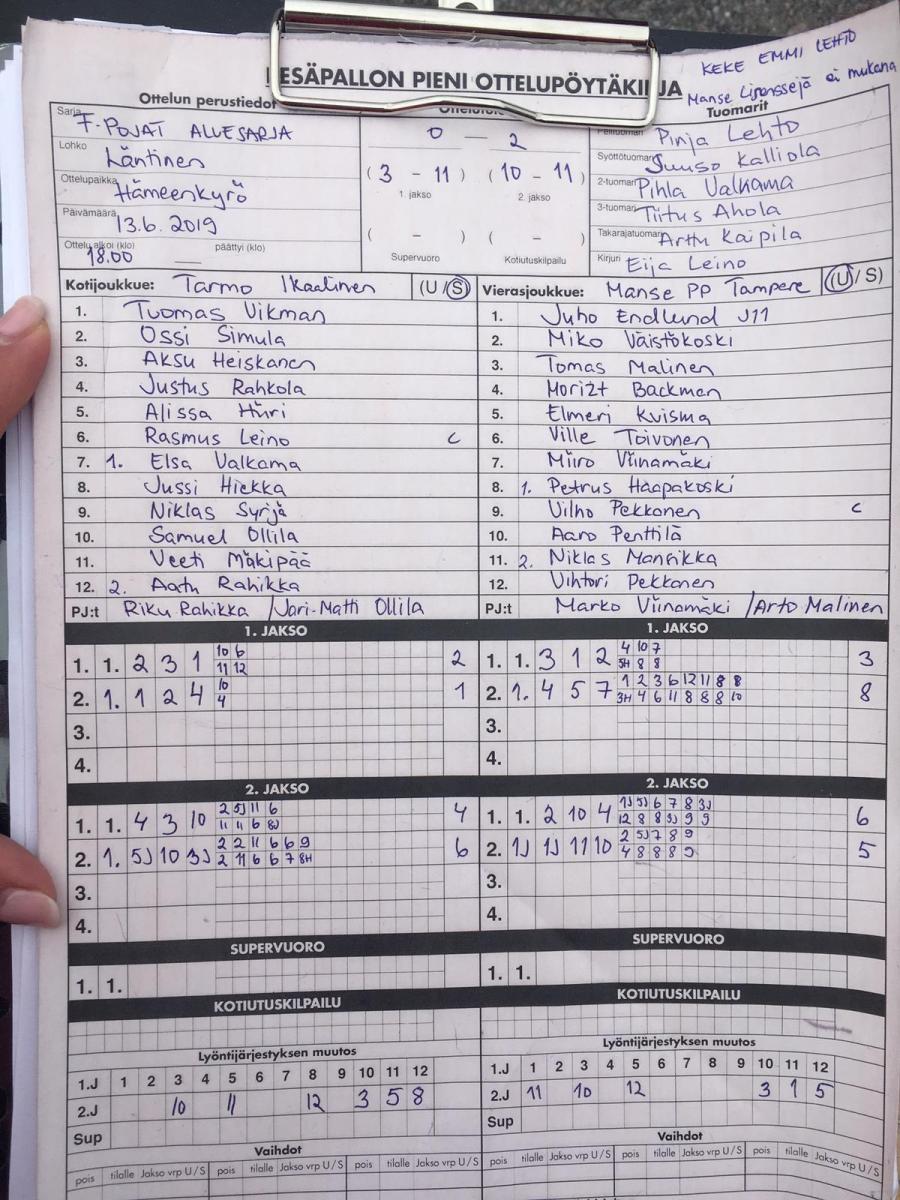 KEKE EMMI LEHTO
Manse Lisenssejä ei mukana
PESÄPALLON PIENI OTTELUPÖYTÄKIRJA
Ottelun perustiedot
Tuomarit
Sarja F-POJAT ALUESARJA
Lohko Läntinen
Ottelupaikka Hämeenkyrö
Päivämäärä 13.6. 2019
Ottelu alkoi (klo) 18.00 päättyi (klo)
0 — 2
(3 - 11) (10 - 11)
1. jakso 2. jakso
( - ) ( - )
Supervuoro Kotiutuskilpailu
Pelituomari Pinja Lehto
Syöttötuomari Juuso Kalliola
2-tuomari Pihla Valkama
3-tuomari Tiitus Ahola
Takarajatuomari Arttu Kaipila
Kirjuri Eija Leino
Kotijoukkue: Tarmo Ikaalinen (U/S)
1. Tuomas Vikman
2. Ossi Simula
3. Aksu Heiskanen
4. Justus Rahkola
5. Alissa Hiiri
6. Rasmus Leino c
7. 1. Elsa Valkama
8. Jussi Hiekka
9. Niklas Syrjä
10. Samuel Ollila
11. Veeti Mäkipää
12. 2. Aatu Rahikka
PJ:t Riku Rahikka / Jari-Matti Ollila
Vierasjoukkue: Manse PP Tampere (U/S)
1. Juho Endlund J11
2. Miko Väistökoski
3. Tomas Malinen
4. Morizt Backman
5. Elmeri Kuisma
6. Ville Toivonen
7. Miiro Viinamäki
8. 1. Petrus Haapakoski
9. Vilho Pekkonen c
10. Aaro Penttilä
11. 2. Niklas Mansikka
12. Vihtori Pekkonen
PJ:t Marko Viinamäki / Arto Malinen
1. JAKSO
10 6
1. 1. 2 3 1 11 12 2
10
2. 1. 1 2 4 4 1
3.
4.
1. JAKSO
4 10 7
1. 1. 3 1 2 5H 8 8 3
1 2 3 6 12 11 8 8
2. 1. 4 5 7 3H 4 6 11 8 8 8 10 8
3.
4.
2. JAKSO
2 5J 11 6
1. 1. 4 3 10 11 11 6 8J 4
2 2 11 6 6 9
2. 1. 5J 10 3J 2 11 6 6 7 8H 6
3.
4.
2. JAKSO
1J 5J 6 7 8 3J
1. 1. 2 10 4 12 8 8 9J 9 9 6
2 5J 7 8 9
2. 1J 1J 11 10 4 8 8 8 9 5
3.
4.
SUPERVUORO
1. 1.
SUPERVUORO
1. 1.
KOTIUTUSKILPAILU
KOTIUTUSKILPAILU
Lyöntijärjestyksen muutos
1.J 1 2 3 4 5 6 7 8 9 10 11 12
2.J 10 11 12 3 5 8
Sup
Lyöntijärjestyksen muutos
1.J 1 2 3 4 5 6 7 8 9 10 11 12
2.J 11 10 12 3 1 5
Sup
Vaihdot
pois tilalle Jakso vrp U/S pois tilalle Jakso vrp U/S pois tilalle Jakso vrp U/S
Vaihdot
pois tilalle Jakso vrp U/S pois tilalle Jakso vrp U/S pois tilalle Jakso vrp U/S